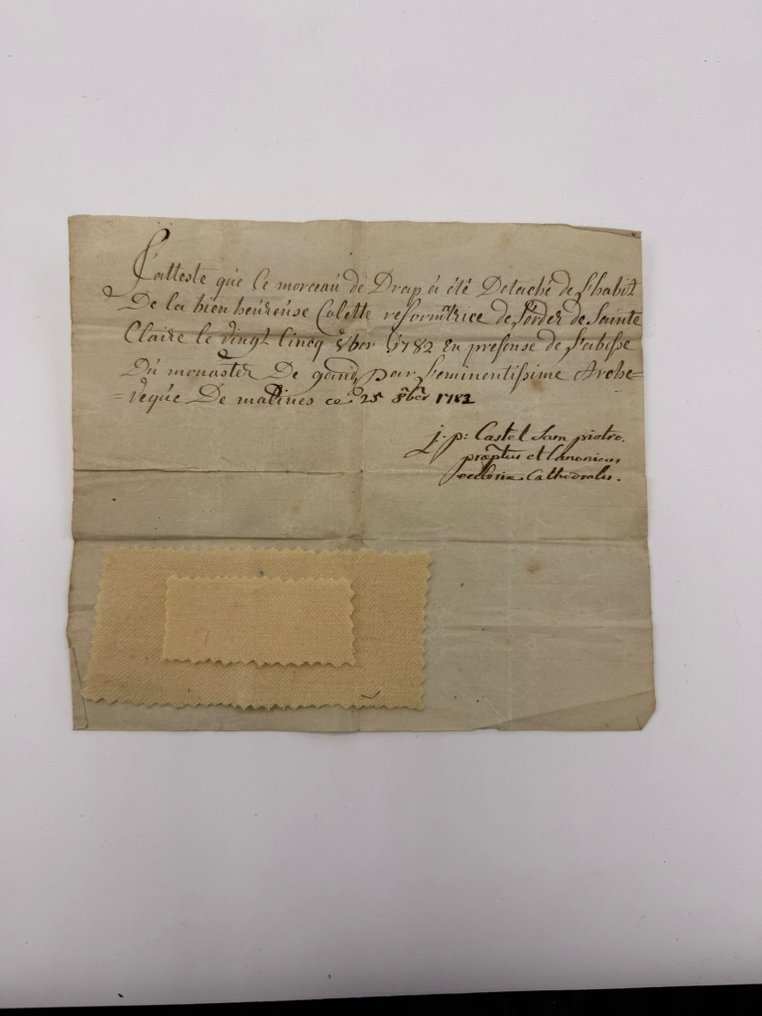 J'atteste que le morceau de Drap à été Detaché de l'habit
De la bien heureuse Colette reformatrice de l'order de Sainte
Claire le vingt Cincq 8bor 1782 En presense de l'abisse
Du monaster De gand par l'eminentissime Arche=
=veque De malines ce 25 8ber 1782
j. p: Castel Sam pietro.
præptus et Canonicus
ecclesiæ Cathedralis.